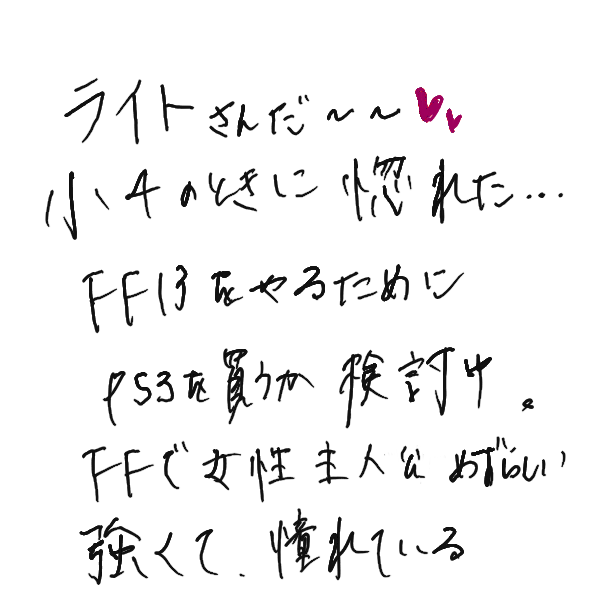 ライトさんだ～～♥♥
小4のときに惚れた…
FF13をやるために
PS3を買うか検討中。
FFで女性主人公めずらしい
強くて、憧れている